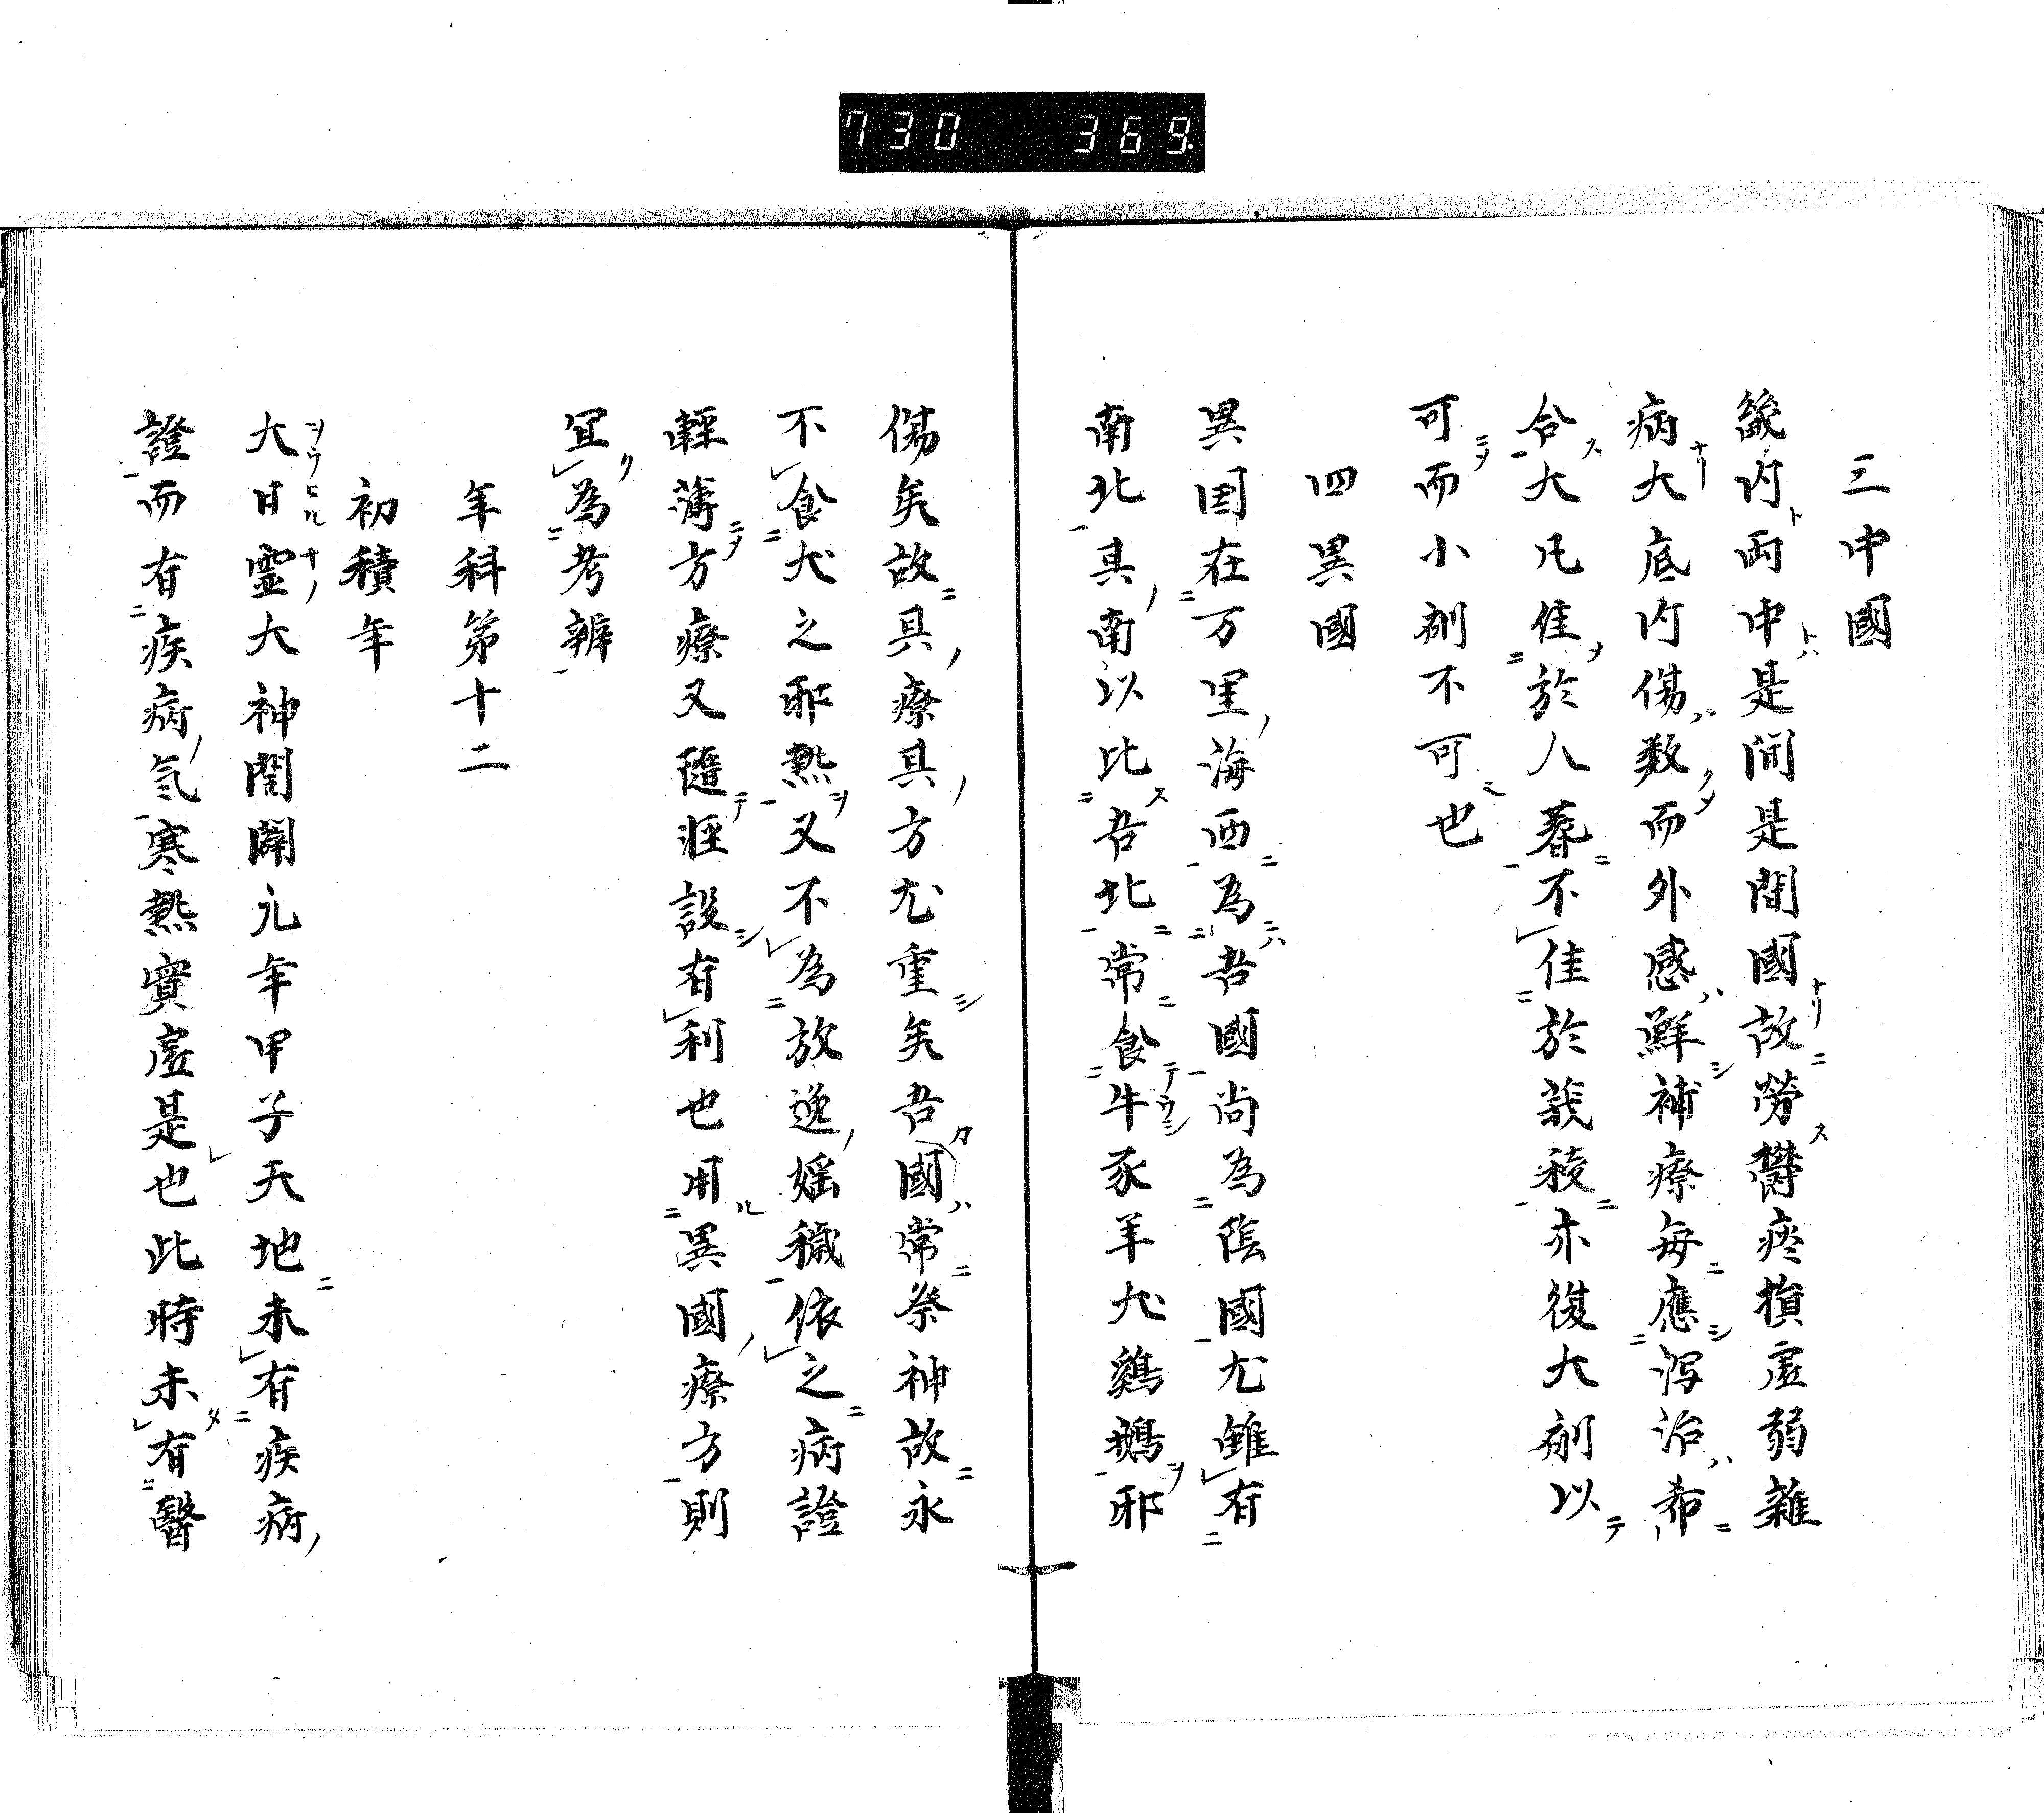 730 369
三中國
畿内兩中是間是間國故勞鬱疼損虛弱雜
病大底内傷数而外感鮮補療每應瀉治希
合大凡佳於人暮不佳於莪稜亦復大剤以
可而小剤不可也
四異國
異国在万里海西為吾國尚為陰國尤雖有
南北其南以比吾北常食牛豕羊犬鷄鵝邪
傷矣故具療其方尤重矣吾國常祭神故永
不食犬之邪熱又不為放逸婬穢依之病證
輕薄方療又隨症設有利也用異國療方則
冝為考辨
年科第十二
初積年
大日霊大神開闢元年甲子天地未有疾病
證而有疾病氣寒熱實虛是也此時未有醫